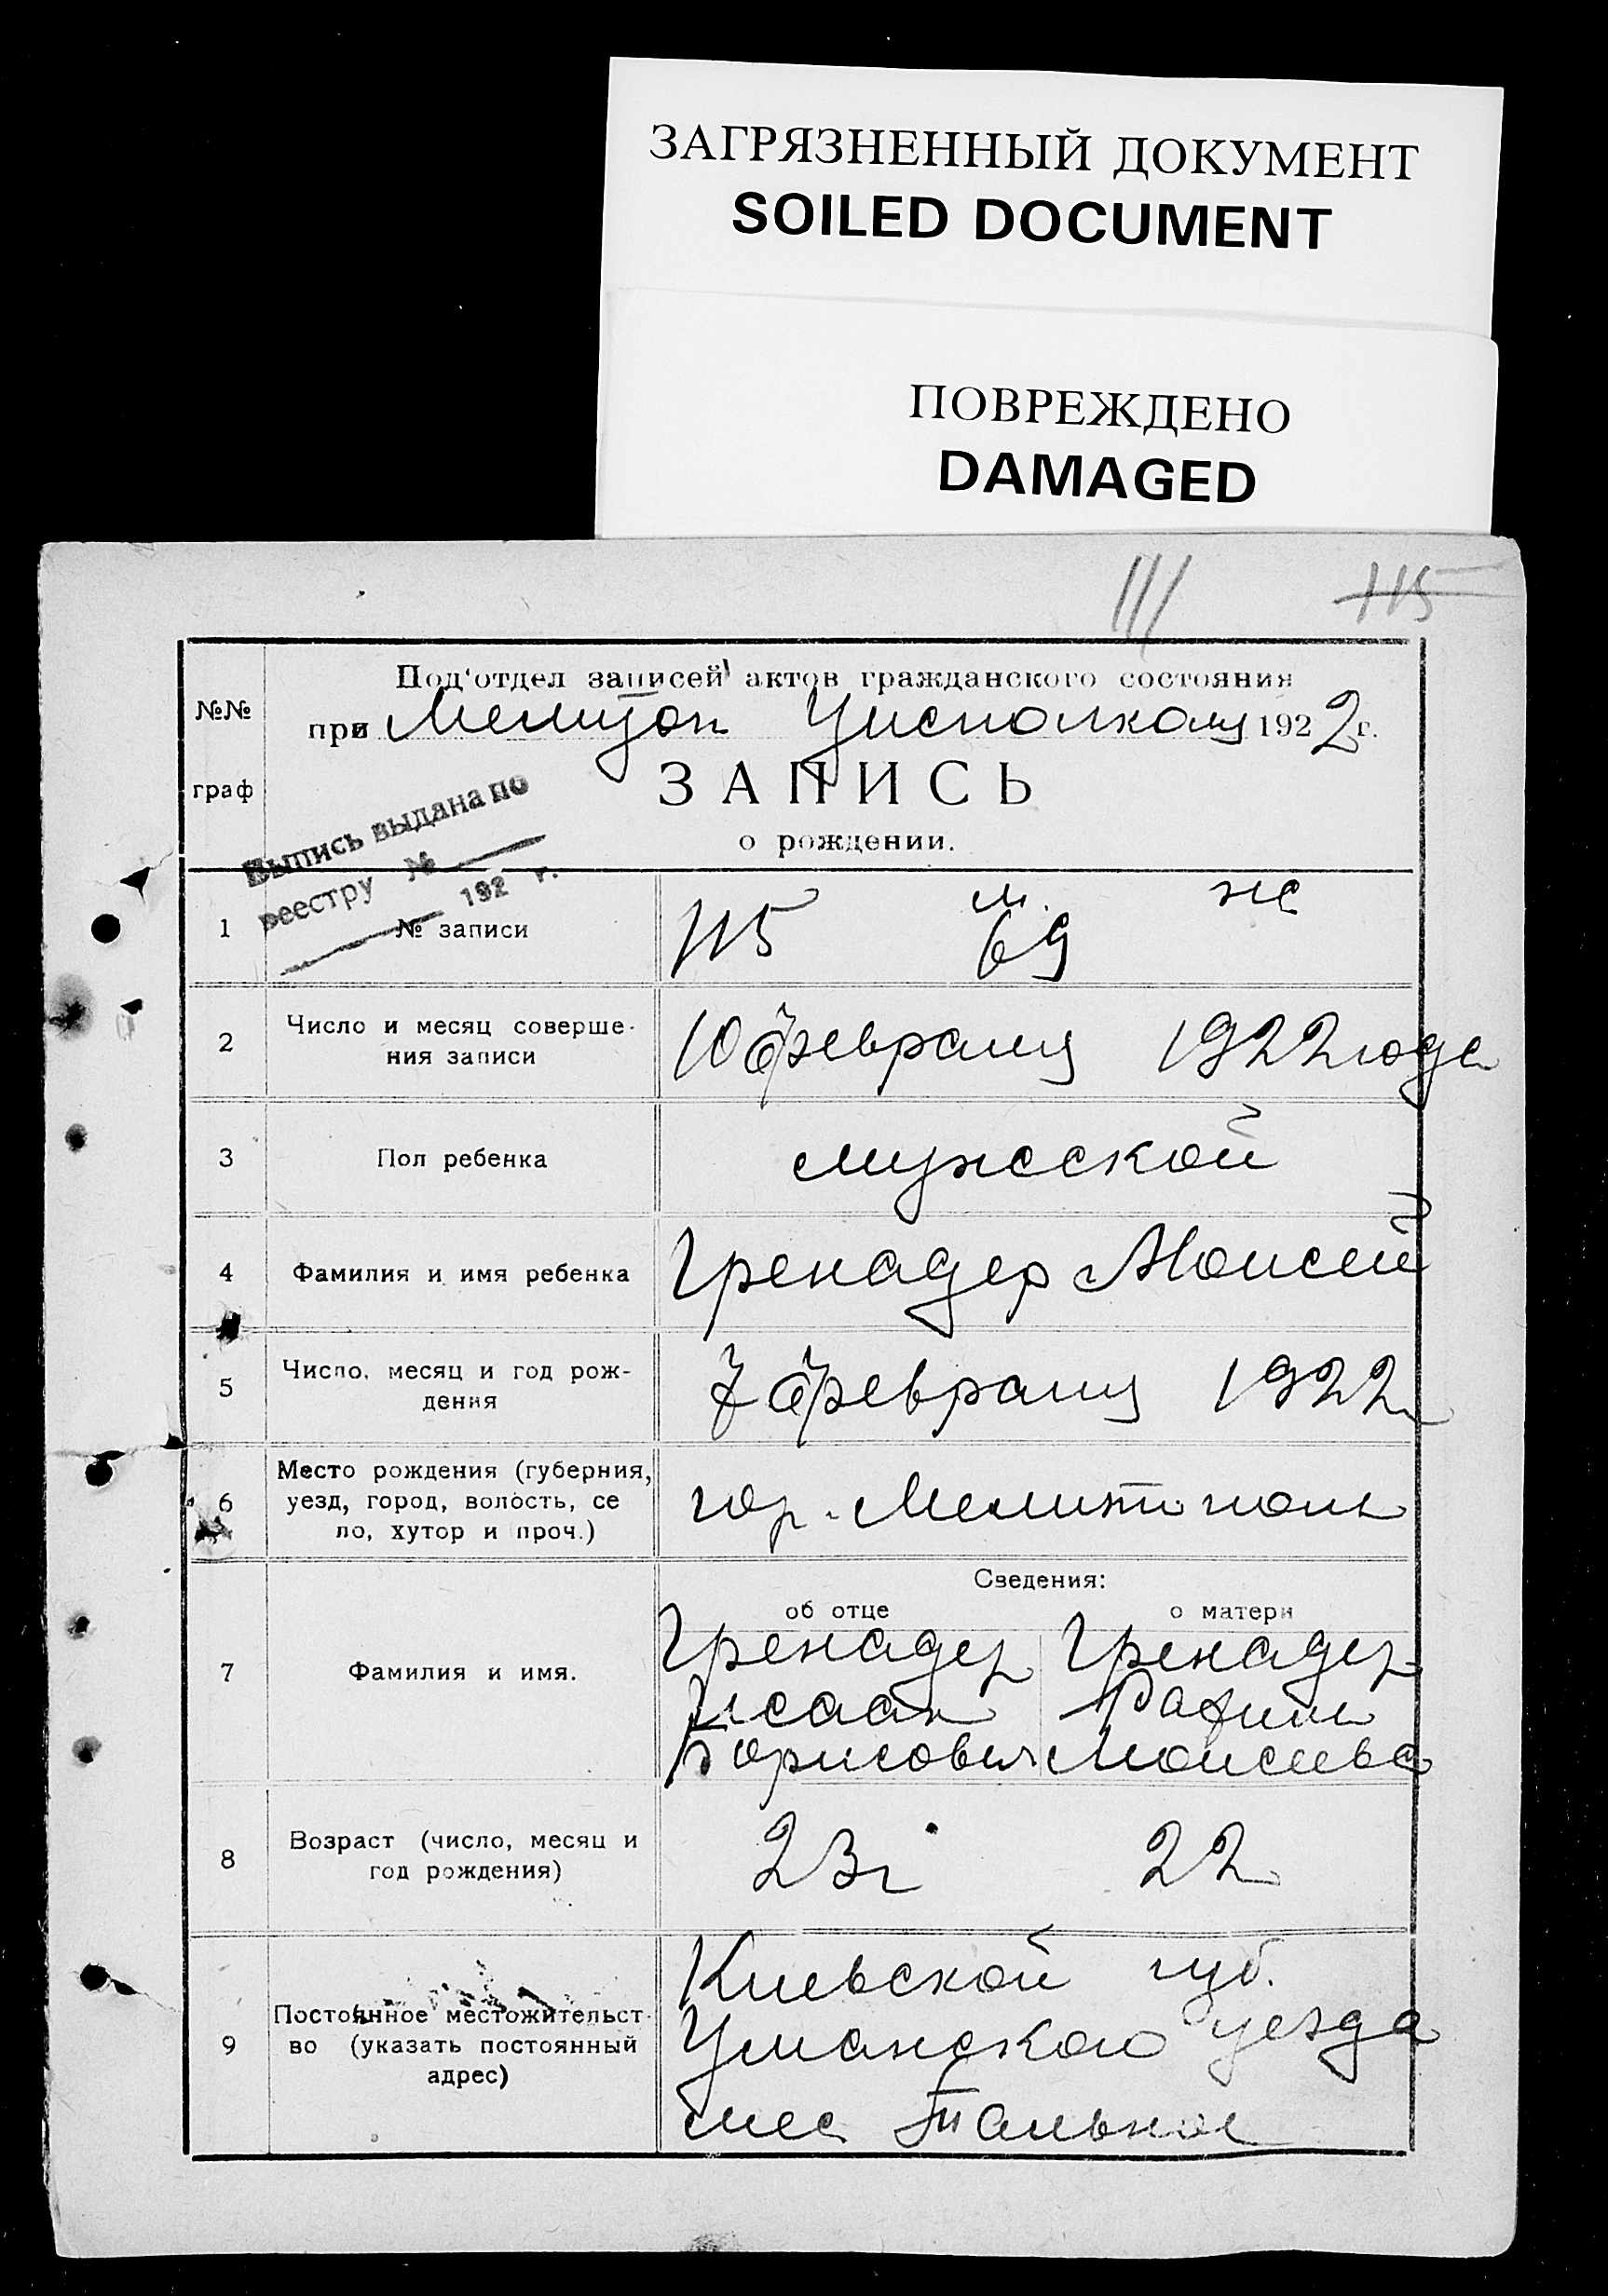 ЗАГРЯЗНЕННЫЙ ДОКУМЕНТ
SOILED DOCUMENT
ПОВРЕЖДЕНО
DAMAGED
111 115
Под'отдел записей актов гражданского состояния
№№
при Мелитоп Уисполкому 1922 г.
граф
ЗАПИСЬ
о рождении.
Выпись выдана по
реестру №
192 г.
м. ж
1 № записи 115 69
2 Число и месяц соверше-
ния записи
10 февраля 1922 года
3 Пол ребенка мужской
4 Фамилия и имя ребенка Гренадер Моисей
5 Число, месяц и год рож-
дения
7 февраля 1922
6 Место рождения (губерния,
уезд, город, волость, се
ло, хутор и проч.)
гор. Мелитополь
Сведения:
об отце о матери
7 Фамилия и имя.
Гренадер Гренадер
Исаак
Борисович Моисеевна
8 Возраст (число, месяц и
год рождения)
23г 22
9 Постоянное местожительст-
во (указать постоянный
адрес)
Киевской губ.
Уманского уезда
мес Тальное